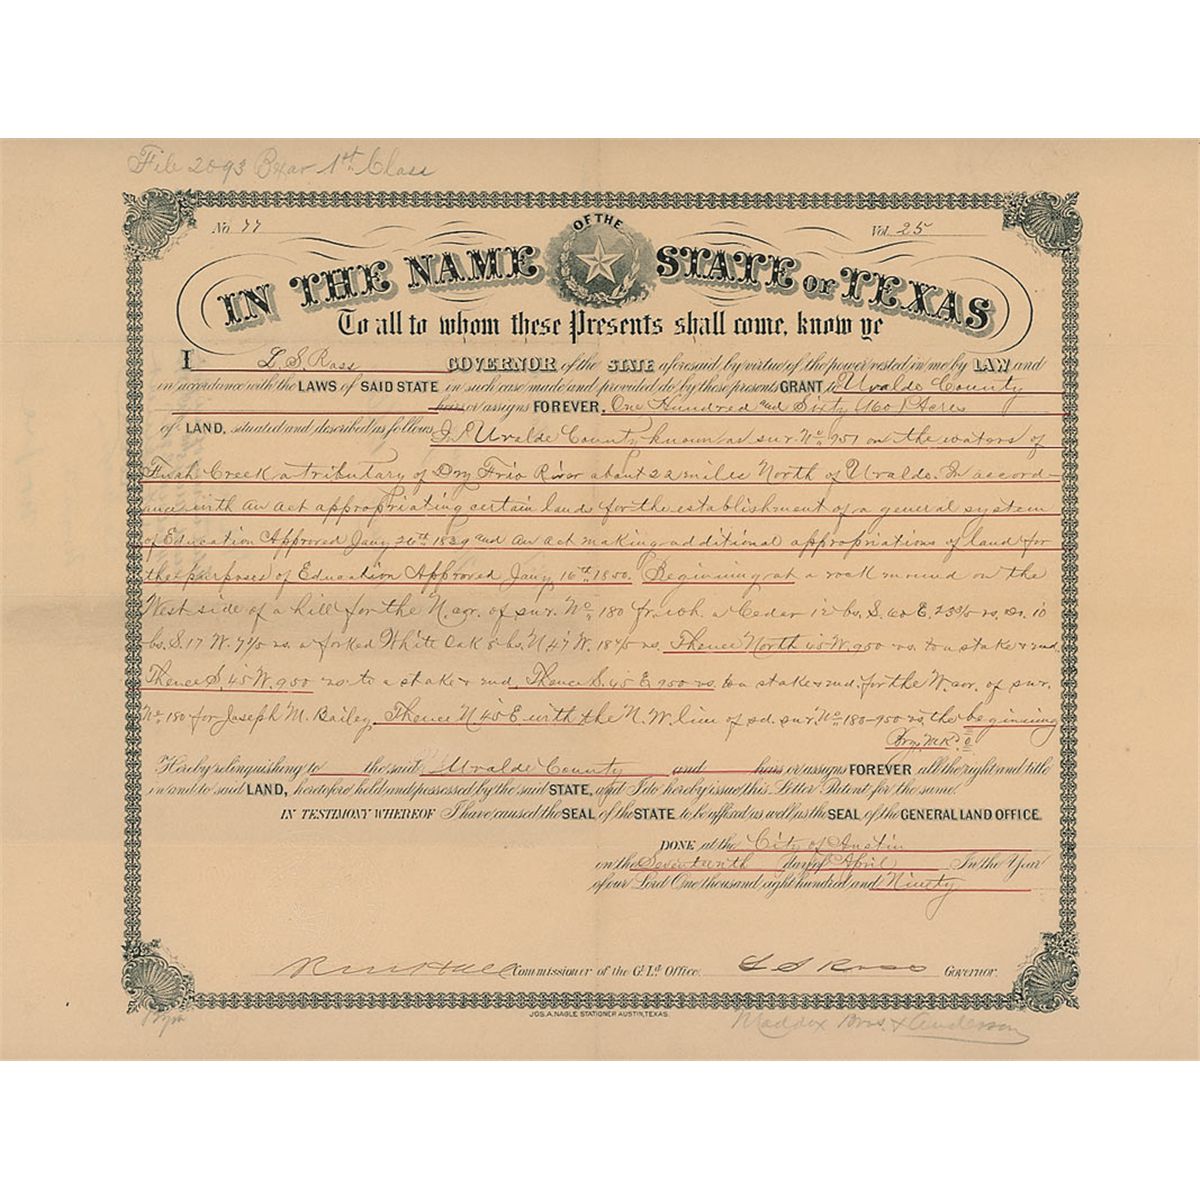 File 2093 Bexar 1st Class
No 77
Vol. 25
IN THE NAME OF THE STATE OF TEXAS
To all to whom these Presents shall come, know ye
I L. S. Ross GOVERNOR of the STATE aforesaid by virtue of the power vested in me by LAW and
in accordance with the LAWS of SAID STATE in such case made and provided do by these presents GRANT to Uvalde County
heirs or assigns FOREVER, One Hundred and Sixty (160) Acres
of LAND, situated and described as follows, In Uvalde County known as sur. No. 951 on the waters of
Creek a tributary of Dry Frio River about 22 miles North of Uvalde. In accord-
ance with An act appropriating certain lands for the establishment of a general system
of Education Approved Jany 26th 1839 and An act making additional appropriations of land for
the purposes of Education Approved Jany 16th 1850. Beginning at a rock mound on the
West side of a hill for the N. cor. of sur. No 180 fr. wh. a Cedar 12 bs. S. 60 E. 23 3/5 vs. Do. 10
bs. S. 17 W. 7 4/5 vs. a forked White Oak 8 bs. N 47 W. 18 4/5 vs. Thence North 45 W. 950 vs. to a stake & md.
Thence S. 45 W. 950 vs. to a stake & md. Thence S. 45 E 950 vs. to a stake & md. for the W. cor. of sur.
No 180 for Joseph M. Bailey, Thence N. 45 E with the N. W. line of sd. sur. No 180-950 vs. the beginning
Brgs. Mkd.
Hereby relinquishing to the said Uvalde County and heirs or assigns FOREVER all the right and title
in and to said LAND, heretofore held and possessed by the said STATE, and I do hereby issue this Letter Patent for the same.
IN TESTIMONY WHEREOF I have caused the SEAL of the STATE to be affixed as well as the SEAL of the GENERAL LAND OFFICE.
DONE at the City of Austin
on the Seventeenth day of April In the Year
of our Lord One thousand eight hundred and Ninety
R M Hall Commissioner of the Gl. Ld. Office. L S Ross Governor.
JOS. A. NAGLE STATIONER AUSTIN, TEXAS.
Maddox Bros. & Anderson